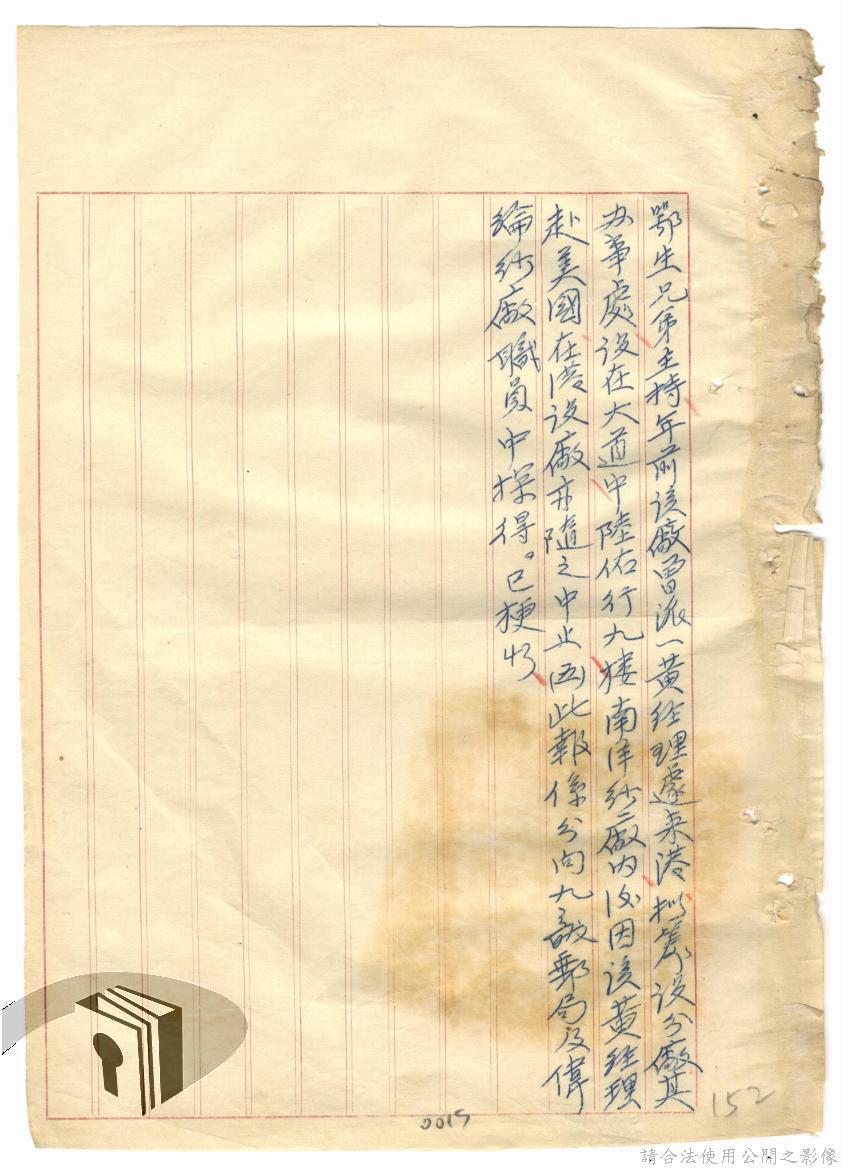 鄂生兄弟主持年前該廠曾派一黃经理遽来港拟筹设分廠其
办事處设在大道中陸佑行九樓南洋纱廠内後因该黃经理
赴美國在港设廠亦随之中止㈤此報係分向九龍郵局及偉
綸纱廠職員中探得。已梗
152
0015
請合法使用公開之影像